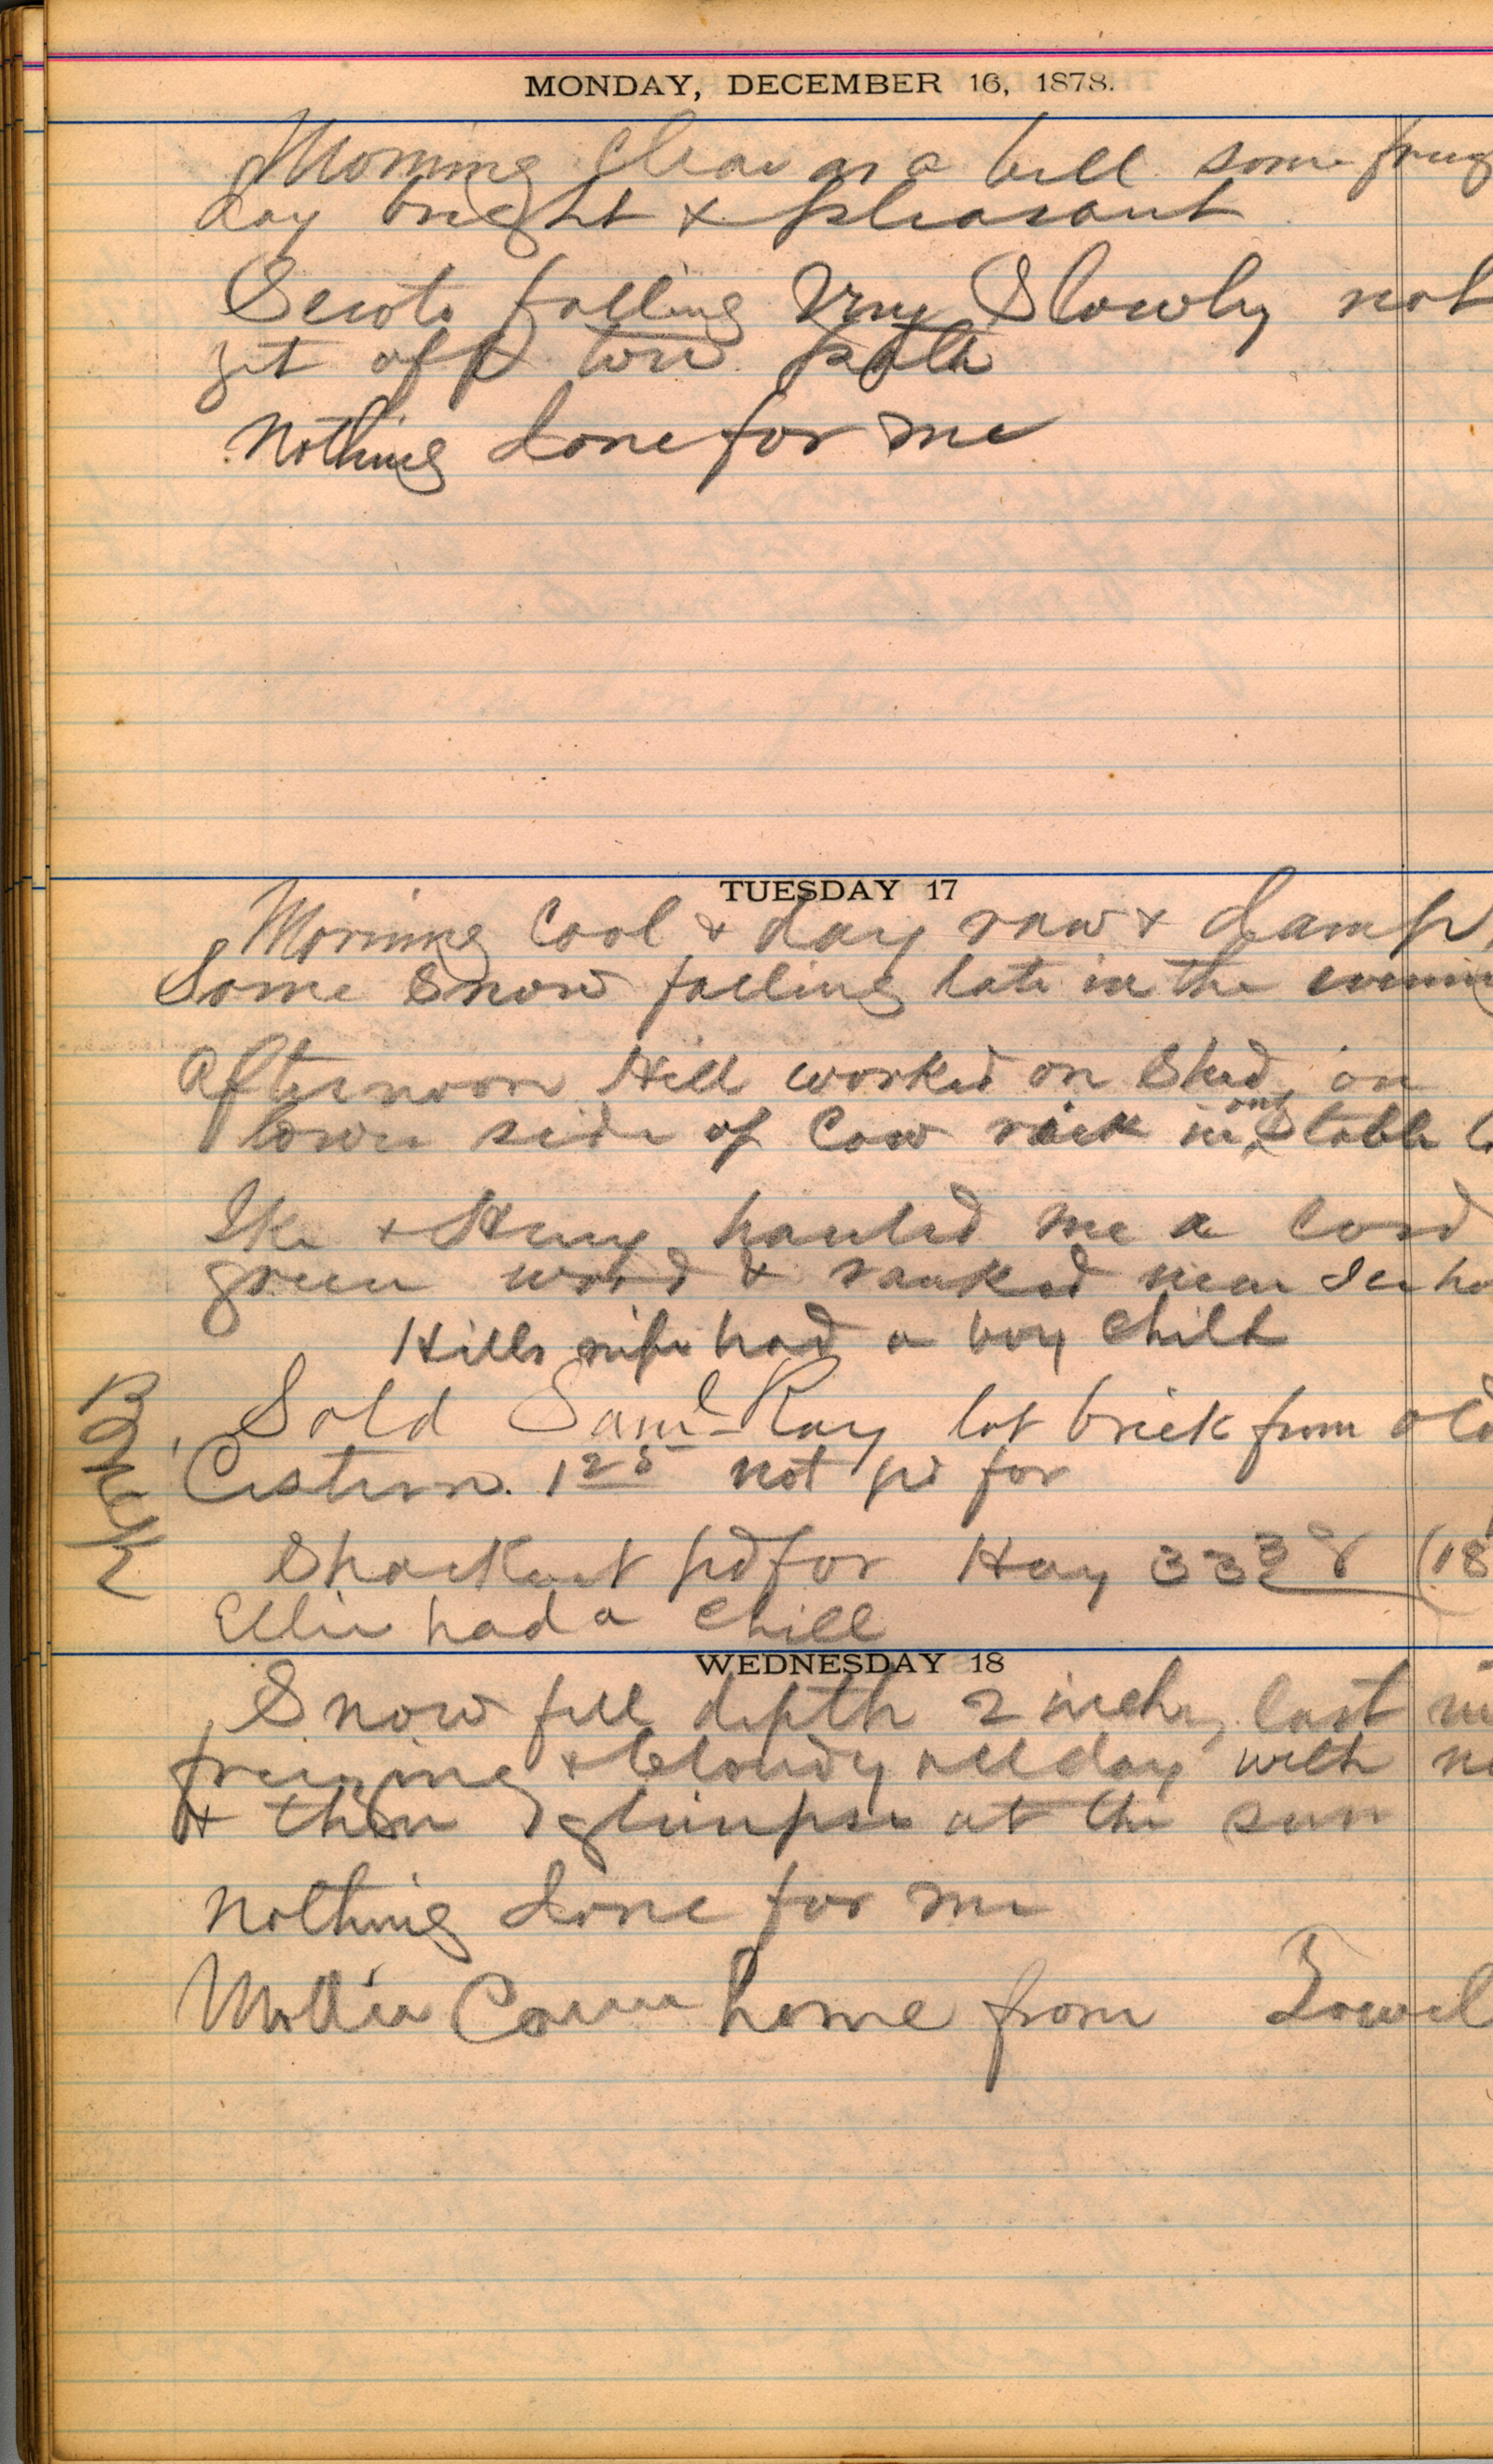 MONDAY, DECEMBER 16, 1878.
Morning Clear as a bell some
day bright & pleasant
Scioto falling Very Slowly not
yet off tow path
Nothing done for me
TUESDAY 17
Morning Cool & day raw & damp,
Some Snow falling late in the evening
Afternoon Hill worked on Shed on
lower side of Cow rick in stable
Ike & Henry hauled me a Cord
green wood & ranked near
Hills wife had a boy child
Brick
Sold Saml Ray lot brick from old
Cistern. 1 25 not pd for
Shackurt pd for Hay 33 38 (18
Ellie had a Chill
WEDNESDAY 18
Snow fell depth 2 inches last
freezing & Cloudy all day with
& then glimpse at the sun
Nothing done for me
Mollie Came home from